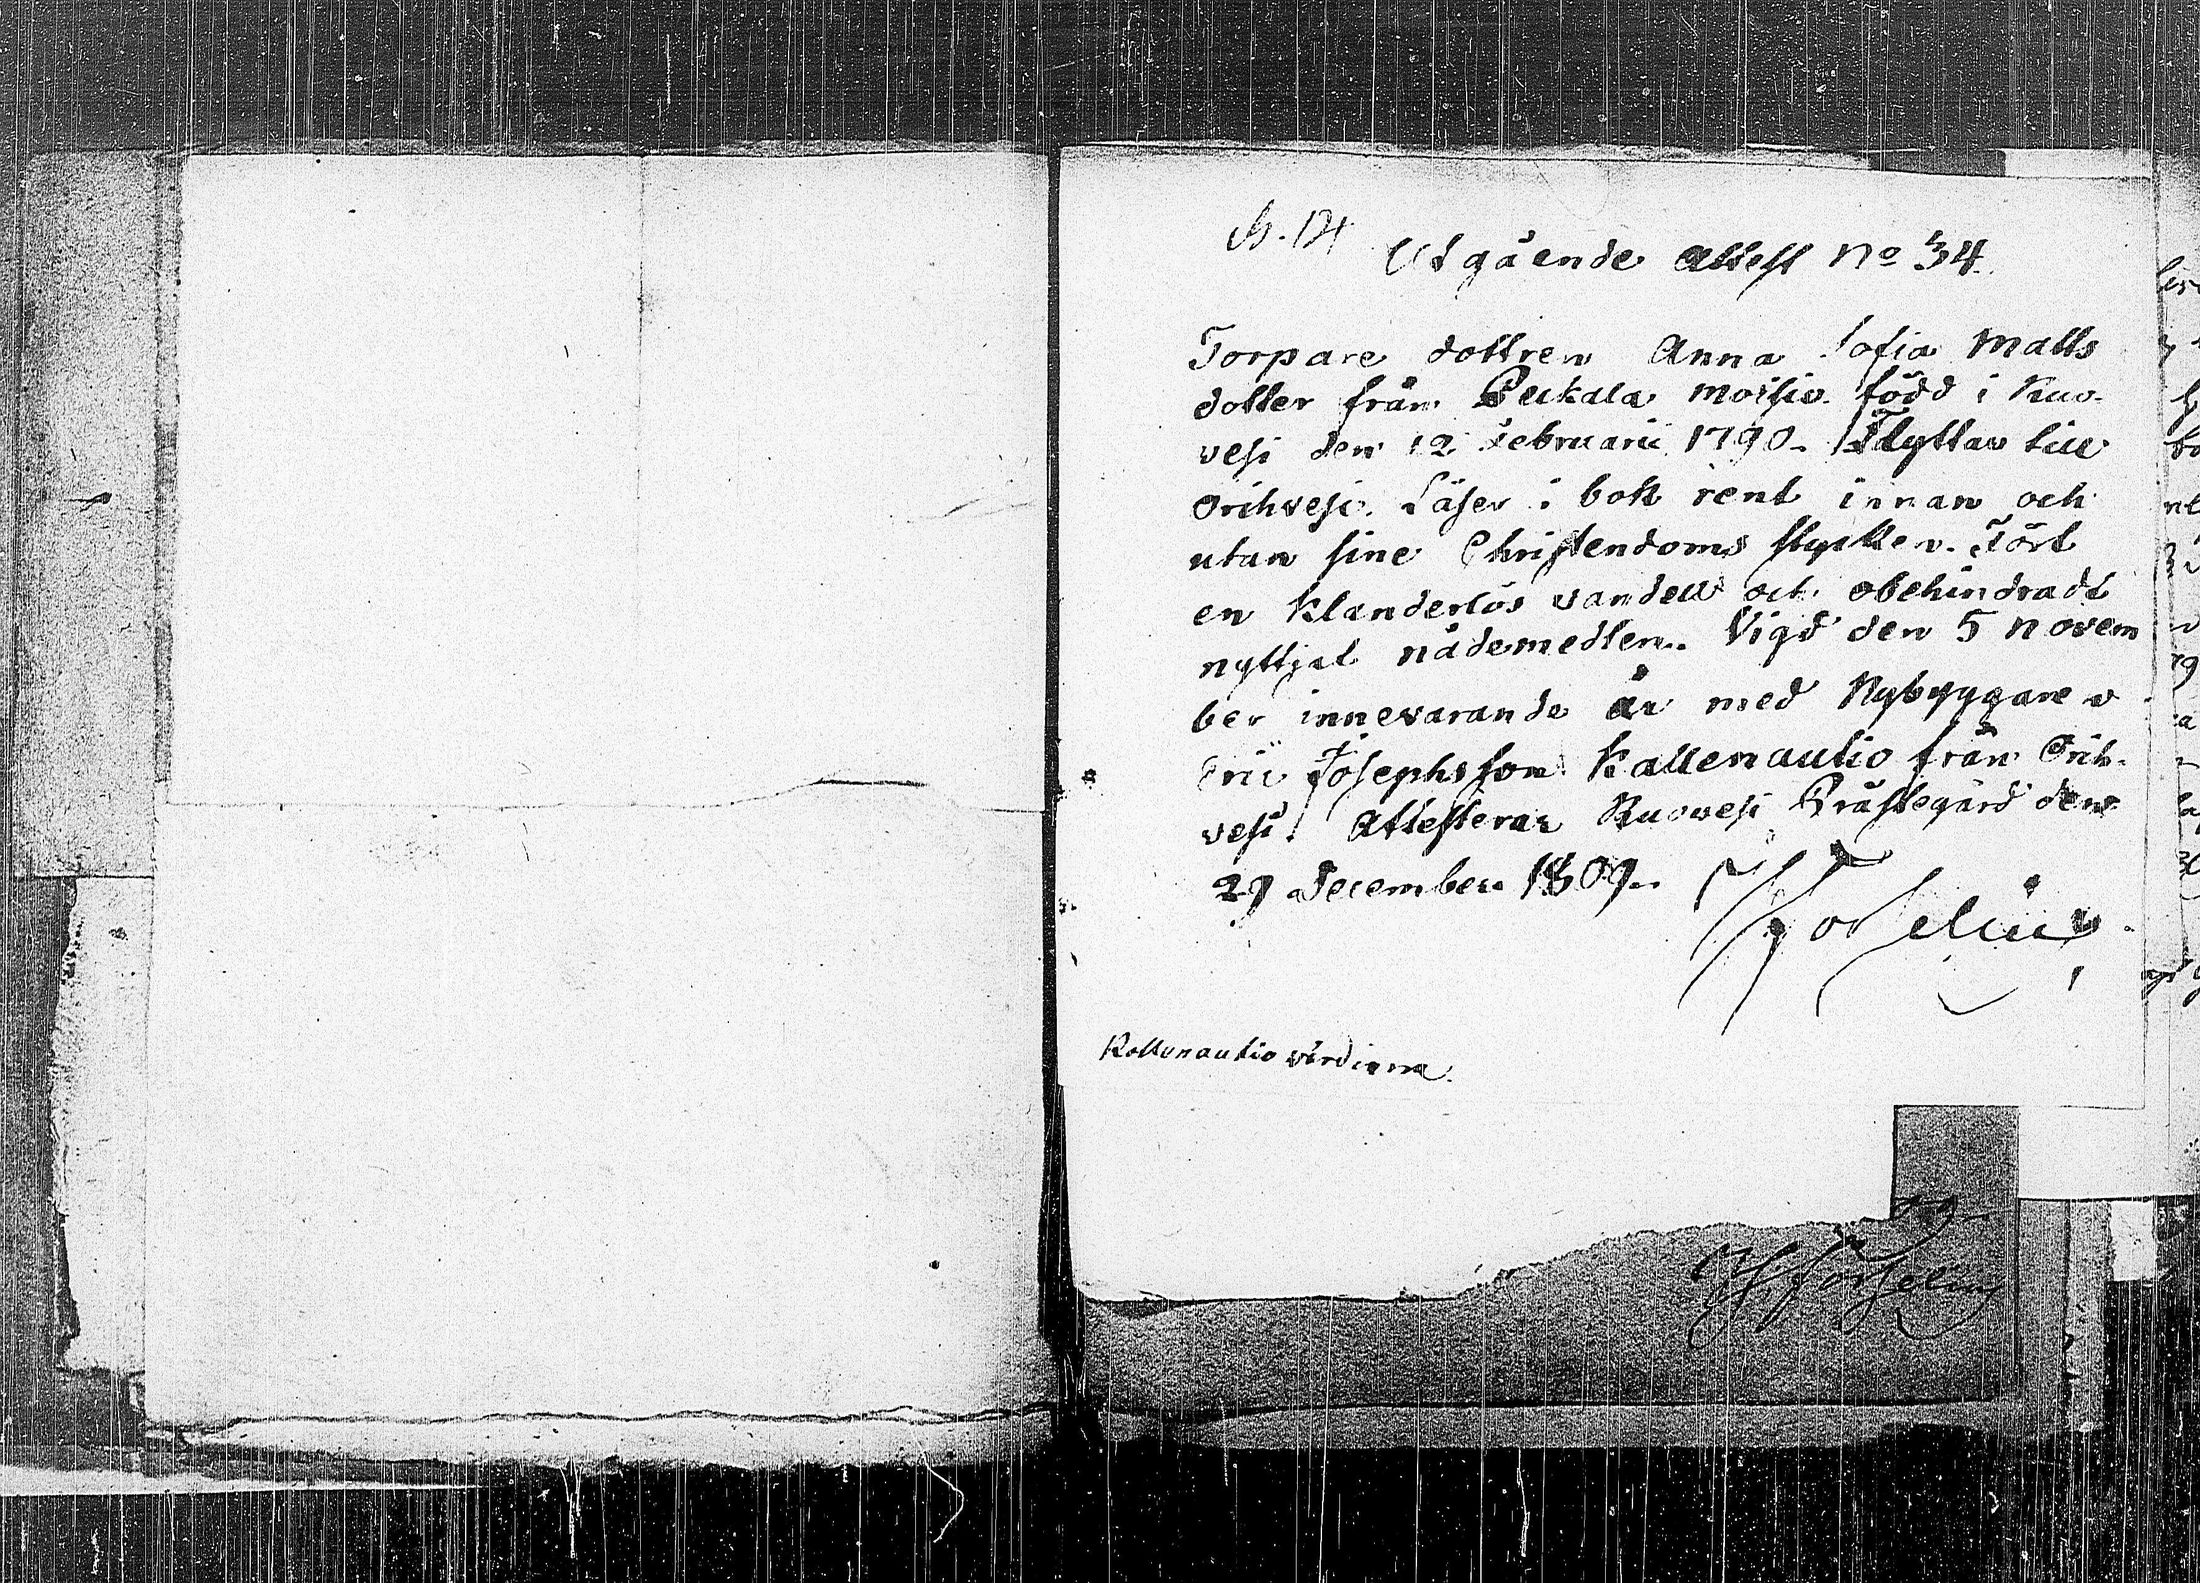 Utgående Attest No 34
Torpare dottren Anna Sofia Matts
dotter från Peckala moisio född i Ruo-
vesi den 12 Februarii 1790. Flyttar till
Orihvesi. Läser i bok rent innan och
utan sine Christendoms stycken. Fört
en klanderlös vandell och obehindradt
nyttjat nådemedlen. Vigd den 5 Novem
ber innevarande år med Nybyggaren
Eric Josephsson Kallenautio från Orih-
vesi. Attesterar Ruovesi Prästegård den
29 December 1809.
Forselius
Kallenautio värdinna.
Forselius